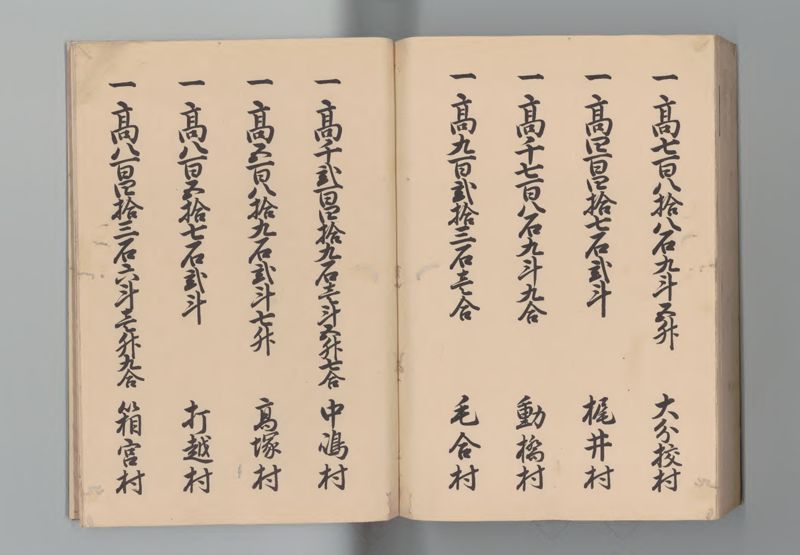 一 高七百八拾八石九斗五升 大分校村
一 高四百四拾七石弐斗 梶井村
一 高千七百八石九斗九合 動橋村
一 高九百弐拾三石壱合 毛合村
一 高千弐百四拾九石壱斗五升七合 中嶋村
一 高五百八拾九石弐斗七升 高塚村
一 高八百五拾七石弐斗 打越村
一 高八百四拾三石六斗壱升九合 箱宮村